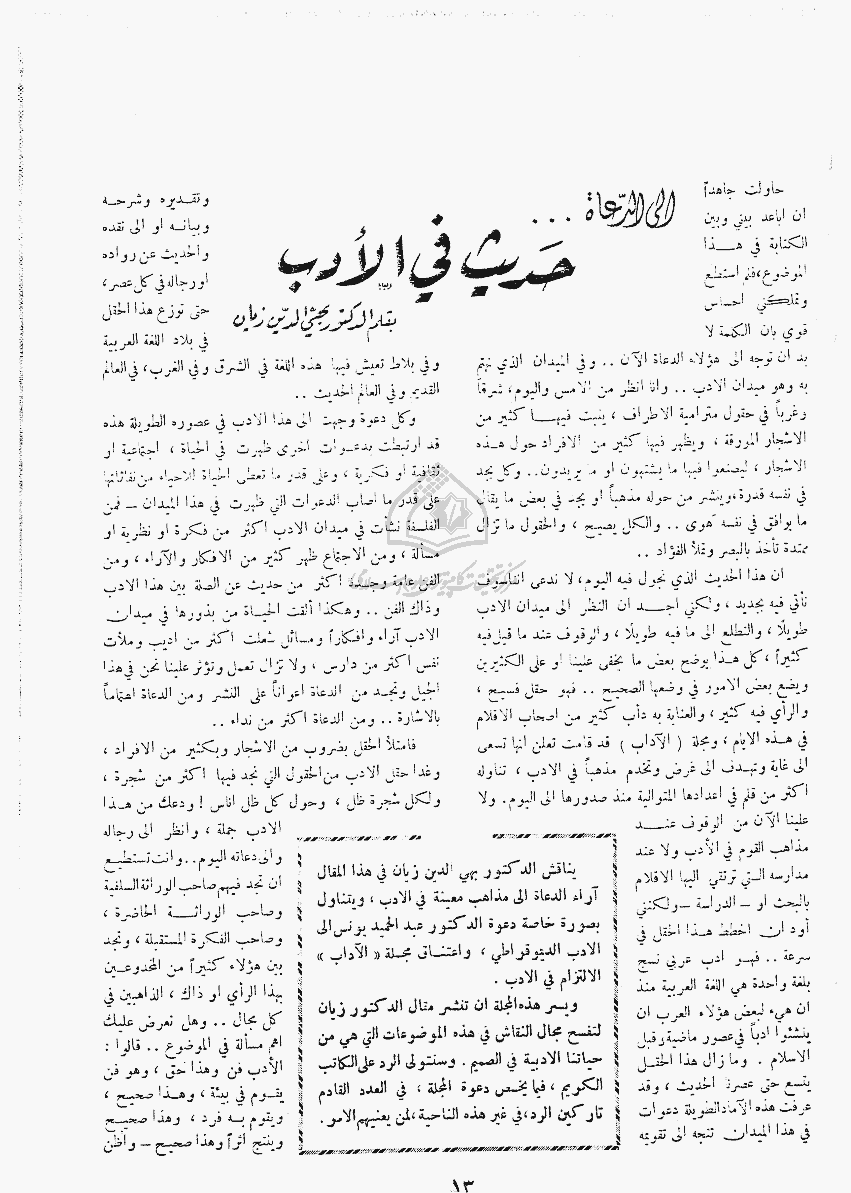 الى الدّعاة ...
حَديث في الأدب
بقلم الدكتور بهيّ الدين زيان
حاولت جاهداً
ان اباعد بيني وبين
الكتابة في هـــذا
الموضوع، فلم استطع
وتملكني احساس
قوي بان الكلمة لا
بد ان توجه الى هؤلاء الدعاة الآن .. وفي الميدان الذي نهتم
به وهو ميدان الادب .. وانا انظر من الامس واليوم، شرقاً
وغرباً في حقول مترامية الاطراف ، ينبت فيهــا كثير من
الاشجار المورقة ، ويظهر فيها كثير من الافراد حول هـذه
الاشجار ، ليصنعوا فيها ما يشتهون او ما يريدون.. وكل يجد
في نفسه قدرة، وينشر من حوله مذهباً او يجد في بعض ما يقال
ما يوافق في نفسه هوى .. والكل يصيح ، والحقول ما تزال
ممتدة تأخذ بالبصر وتملأ الفؤاد ..
ان هذا الحديث الذي نجول فيه اليوم، لا ندعى اننا سوف
نأتي فيه بجديد ، ولكني اجــد ان النظر الى ميدان الادب
طويلًا ، والتطلع الى ما فيه طويلًا ، والوقوف عند ما قيل فيه
كثيراً ، كل هـذا يوضح بعض ما يخفى علينا او على الكثيرين
ويضع بعض الامور في وضعها الصحيح .. فهو حقل فسيح ،
والرأي فيه كثير ، والعناية به دأب كثير من اصحاب الاقلام
في هـذه الايام ، ومجلة ( الآداب ) قد قامت تعلن انها تسعى
الى غاية وتهـدف الى غرض وتخدم مذهباً في الادب ، تناوله
اكثر من قلم في اعدادها المتوالية منذ صدورها الى اليوم. ولا
علينا الآن من الوقوف عنــد
مذاهب القوم في الأدب ولا عند
مدارسه التي ترتقي اليها الاقلام
بالبحث او – الدراسة – ولكني
أود ان اخطط هـذا الحقل في
سرعة .. فهــو ادب عربي نسج
بلغة واحدة هي اللغة العربية منذ
ان هيء لبعض هؤلاء العرب ان
ينشئوا ادباً في عصور ماضية وقبل
الاسلام . وما زال هذا الحقــل
يتسع حتى عصرنا الحديث ، وقد
عرفت هذه الآماد الطويلة دعوات
في هذا الميدان تتجه الى تقويمه
وتقــديره وشرحــه
وبيانــه او الى نقده
والحديث عن رواده
اورجاله في كل عصر،
حتى توزع هذا الحقل
في بلاد اللغة العربية
وفي بلاط تعيش فيها هذه اللغة في الشرق وفي الغرب، في العالم
القديم وفي العالم الحديث ..
وكل دعوة وجهت الى هذا الادب في عصوره الطويلة هذه
قد ارتبطت بدعــوات اخرى ظهرت في الحياة ، اجتماعية او
ثقافية او فكرية ، وعلى قدر ما تعطى الحياة الاحياء من نفاثاتها
على قدر ما اصاب الدعوات التي ظهرت في هذا الميدان – فمن
الفلسفة نشأت في ميدان الادب اكثر من فكرة او نظرية او
مسألة ، ومن الاجتماع ظهر كثير من الافكار والآراء ، ومن
الفن عامة وجدنا اكثر من حديث عن الصلة بين هذا الادب
وذاك الفن .. وهكذا ألقت الحيــاة من بذورها في ميدان
الادب آراء وافكاراً ومسائل شغلت اكثر من اديب وملأت
نفس اكثر من دارس ، ولا تزال تعمل وتؤثر علينا نحن في هذا
الجيل ونجــد من الدعاة اعواناً على النشر ومن الدعاة اهتماماً
بالاشارة .. ومن الدعاة اكثر من نداء ..
فامتلأ الحقل بضروب من الاشجار وبكثير من الافراد ،
وغدا حقل الادب من الحقول التي نجد فيها اكثر من شجرة ،
ولكل شجرة ظل ، وحول كل ظل اناس ! ودعك من هــذا
الادب جملة ، وانظر الى رجاله
والى دعاته اليوم .. وانت تستطيع
أن تجد فيهم صاحب الوراثة السلفية
وصاحب الوراثــة الحاضرة ،
وصاحب الفكرة المستقبلة ، ونجد
بين هؤلاء كثيراً من المخدوعــين
بهذا الرأي او ذاك ، الذاهبين في
كل مجال .. وهل تعرض عليك
اهم مسألة في الموضوع .. قالوا :
الأدب فن وهذا حق ، وهو فن
يقــوم في بيئة ، وهــذا صحيح ،
ويقوم بــه فرد ، وهــذا صحيــح
وينتج أثراً وهذا صحيح – واظن
يناقش الدكتور بهي الدين زيان في هذا المقال
آراء الدعاة الى مذاهب معينة في الادب ، ويتناول
بصورة خاصة دعوة الدكتور عبد الحميد يونس الى
الادب الديموقراطي ، واعتنــاق مجــلة « الآداب »
الالتزام في الادب .
ويسر هذه المجلة ان تنشر مقال الدكتور زيان
لتفسح مجال النقاش في هذه الموضوعات التي هي من
حياتنا الادبية في الصميم . وسنتولى الرد على الكاتب
الكريم ، فيما يخــص دعوة المجلة ، في العدد القادم
تاركين الرد، في غير هذه الناحية، لمن يعنيهم الامر .
١٣